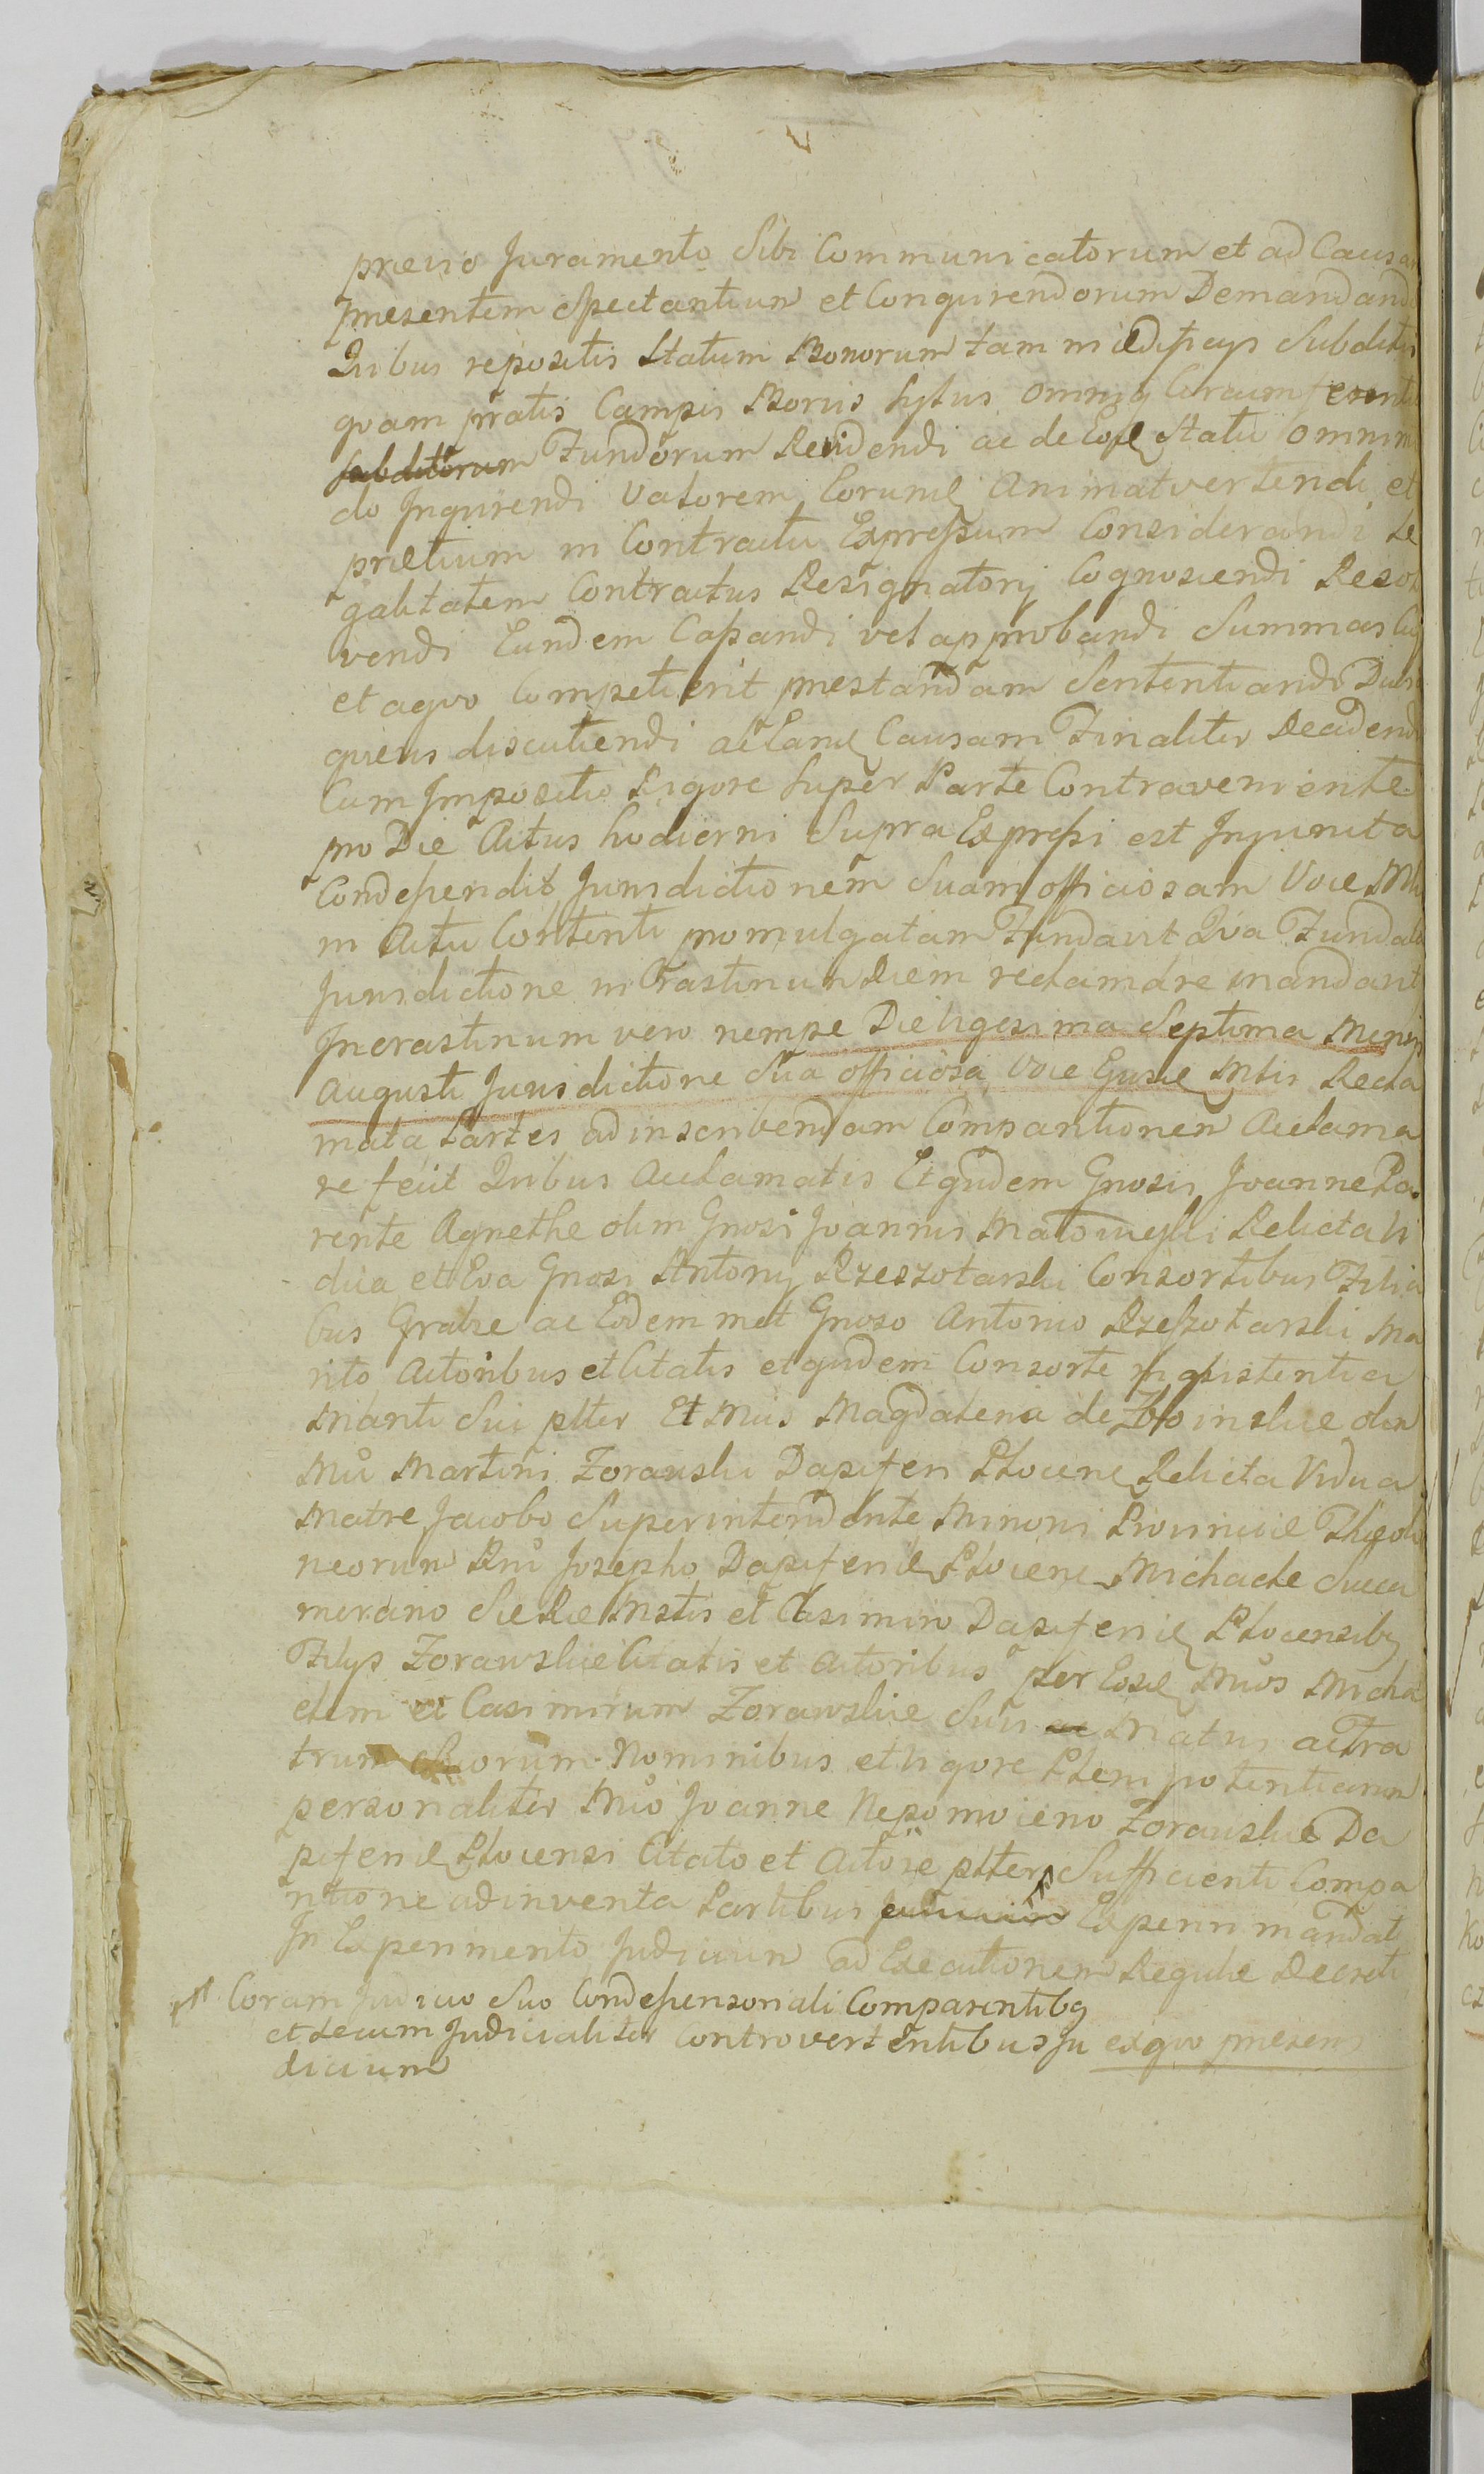 prævio Juramento Sibi Communicatorum et ad Causam
præsentem spectantium et Conquirendorum Demandandi
Quibus repositis Statum Bonorum tam in ædificijs Subditis
quam pratis Campis Boris Sylvis omniq Circumferentia
subditorum Fundorum Revidendi ac de Eorq Statu omnimo
do Inquirendi Valorem Eorumq Animatvertendi et
prætium in Contractu Expressum Considerandi Le
galitatem Contractus Resignatorij Cognoscendi Resol
vendi Eundem Cassandi vel approbandi Summas Cuj
et aquo Competierit præstandam Sententiandi Dubi
quievis discutiendi ac Eamq Causam Finaliter Decidendi
Cum Imposito Rigore super Parte Contraveniente
pro Die Actus hodierni Supra Expressi est Injuncta
Condescendit Jurisdictionem Suam officiosam Voce Mli
in Actu Contenti promulgatam Fundavit Qva Fundata
Jurisdictione in Crastinum Diem reclamare mandavit
Incrastinum vero nempe Die Vigesima Septima Mensis
Augusti Jurisdictione Sua officiosa Voce Ejusdq Mlis Recla
mata Partes ad inscribendam Comparitionem Acclama
re fecit Quibus Acclamatis Et quidem Gnosis Joanne Pa
rente Agnethe olim Gnosi Joannis Malowieyski Relicta Vi
dua et Eva Gnosi Antonij Rzeszotarski Consortibus Filia
bus Gratre ac Eodem met Gnoso Antonio Rzeszotarski Ma
rito Actoribus et Citatis et quidem Consorte in assistentia
Mariti Sui plter Et Mcis Magdalena de Zboinskie olim
Mci Martini Zorawski Dapiferi Plocenq Relicta Vidua
Matre Jacobo Superintendente Minoris Provinciæ Theolo
neorum Rni Josepho Dapiferiq Plocenq Michaele Succa
merario SæRæ Mstis et Casimiro Dapiferiq Plocensibq
Filijs Zorawskie Citatis et Actoribus per Eosq Mcos Micha
elem et Casimirum Zorawskie Suis ac Matris ac Fra
trum Suorum Nominibus et Vigore Plenipotentiarum
personaliter Mco Joanne Nepomuceno Zorawskie Da
piferiq Plocensi Citato et Actore plter Sufficienti Compa
ritione adinventa Partibus Judicium Experiri mandat
In Experimento Judicium ad Executionem Regulæ Decreti
Coram Judicio Suo Condescensoriali Comparentibq
et Secum Judicialiter Controvertentibus Ju exquo præsens
dicium